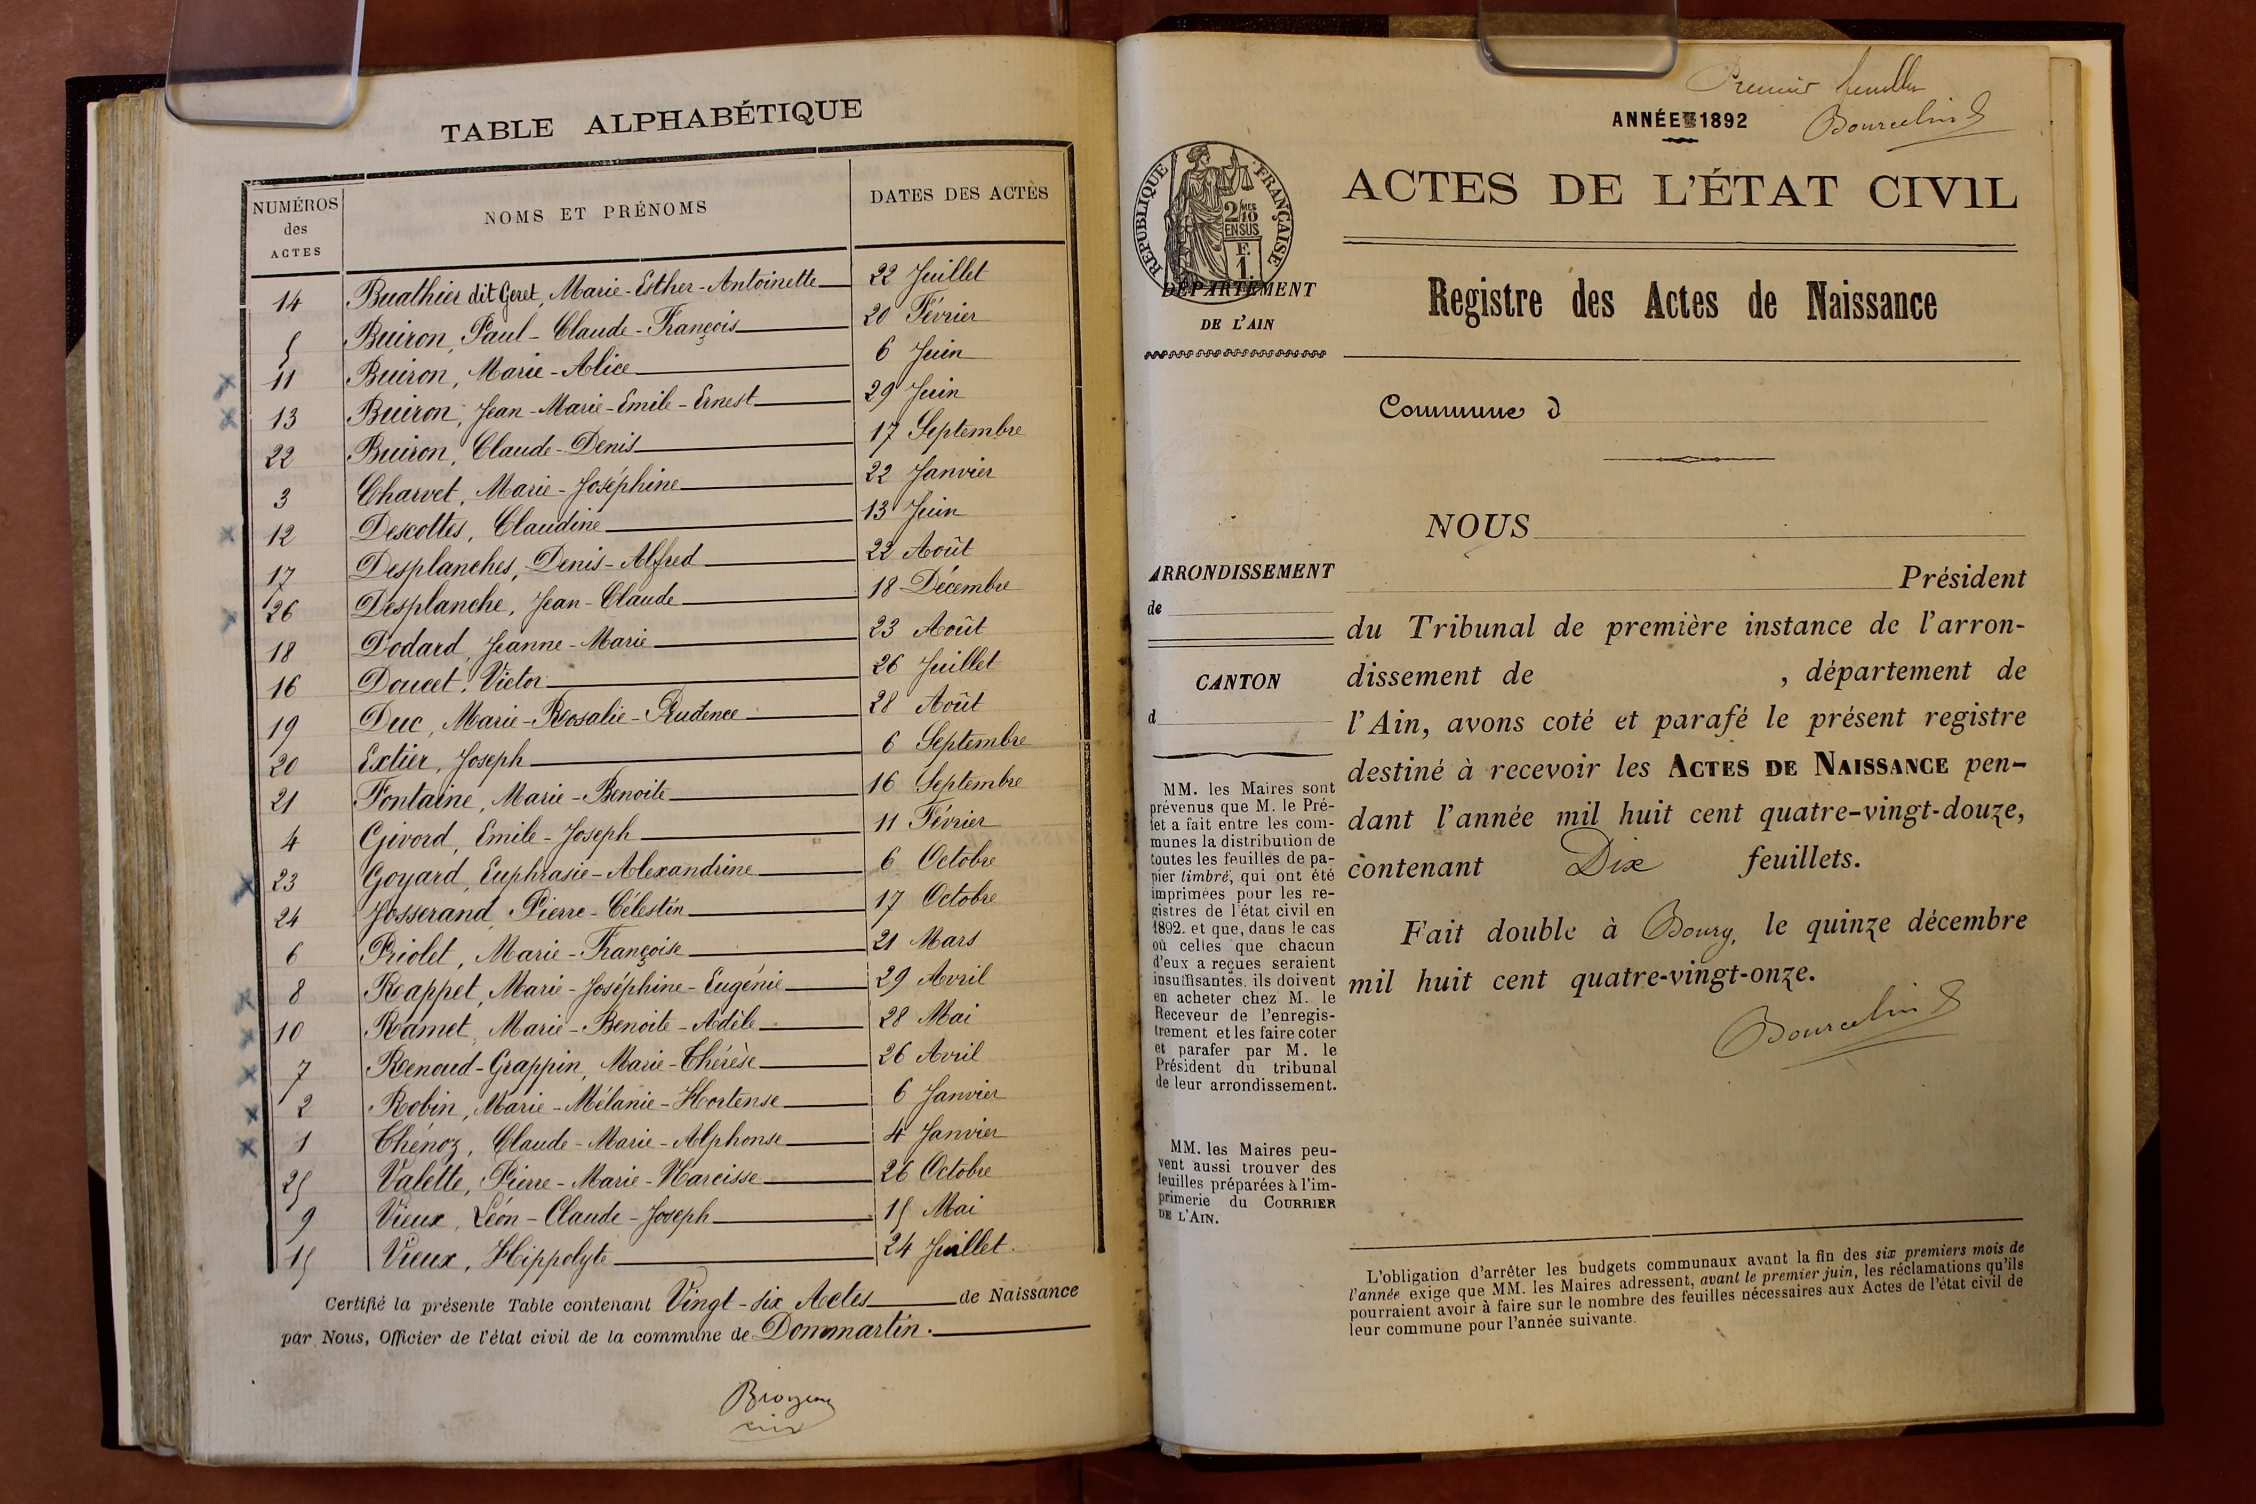 TABLE ALPHABÉTIQUE
NUMÉROS des ACTES NOMS ET PRÉNOMS DATES DES ACTES
14 Buathier dit Geret, Marie-Esther-Antoinette 22 Juillet
5 Buiron, Paul-Claude-François 20 Février
11 Buiron, Marie-Alice 6 Juin
13 Buiron, Jean-Marie-Emile-Ernest 29 Juin
22 Buiron, Claude-Denis 17 Septembre
3 Charvet, Marie-Joséphine 22 Janvier
12 Descottes, Claudine 13 Juin
17 Desplanches, Denis-Alfred 22 Août
26 Desplanche, Jean-Claude 18 Décembre
18 Dodard, Jeanne-Marie 23 Août
16 Doucet, Victor 26 Juillet
19 Duc, Marie-Rosalie-Prudence 28 Août
20 Extier, Joseph 6 Septembre
21 Fontaine, Marie-Benoite 16 Septembre
4 Givord, Emile-Joseph 11 Février
23 Goyard, Euphrasie-Alexandrine 6 Octobre
24 Josserand, Pierre-Célestin 17 Octobre
6 Priolet, Marie-Françoise 21 Mars
8 Rappet, Marie-Joséphine-Eugénie 29 Avril
10 Ramet, Marie-Benoite-Adèle 28 Mai
7 Renoud-Grappin, Marie-Thérèse 26 Avril
2 Robin, Marie-Mélanie-Hortense 6 Janvier
1 Thénoz, Claude-Marie-Alphonse 4 Janvier
25 Valette, Pierre-Marie-Narcisse 26 Octobre
9 Vieux, Léon-Claude-Joseph 15 Mai
15 Vieux, Hippolyte 24 Juillet.
Certifié la présente Table contenant Vingt-six Actes de Naissance
par Nous, Officier de l'état civil de la commune de Dommartin.
Premier feuillet
ANNÉE 1892
Bourcelin
ACTES DE L'ÉTAT CIVIL
RÉPUBLIQUE FRANÇAISE
2/10 MES
EN SUS
F.
1.
DÉPARTEMENT
DE L'AIN
Registre des Actes de Naissance
Commune d
NOUS
ARRONDISSEMENT
de
CANTON
d
Président
du Tribunal de première instance de l'arron-
dissement de , département de
l'Ain, avons coté et parafé le présent registre
destiné à recevoir les ACTES DE NAISSANCE pen-
dant l'année mil huit cent quatre-vingt-douze,
contenant Dix feuillets.
Fait double à Bourg, le quinze décembre
mil huit cent quatre-vingt-onze.
Bourcelin
MM. les Maires sont
prévenus que M. le Pré-
fet a fait entre les com-
munes la distribution de
toutes les feuilles de pa-
pier timbré, qui ont été
imprimées pour les re-
gistres de l'état civil en
1892. et que, dans le cas
où celles que chacun
d'eux a reçues seraient
insuffisantes, ils doivent
en acheter chez M. le
Receveur de l'enregis-
trement et les faire coter
et parafer par M. le
Président du tribunal
de leur arrondissement.
MM. les Maires peu-
vent aussi trouver des
feuilles préparées à l'im-
primerie du COURRIER
DE L'AIN.
L'obligation d'arrêter les budgets communaux avant la fin des six premiers mois de
l'année exige que MM. les Maires adressent, avant le premier juin, les réclamations qu'ils
pourraient avoir à faire sur le nombre des feuilles nécessaires aux Actes de l'état civil de
leur commune pour l'année suivante.